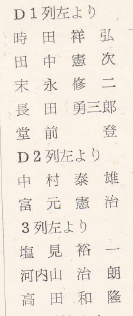 D1列左より
時田祥弘
田中憲次
末永修二
長田勇三郎
堂前登
D2列左より
中村泰雄
富元憲治
3列左より
塩見裕一
河内山治朗
高田和隆